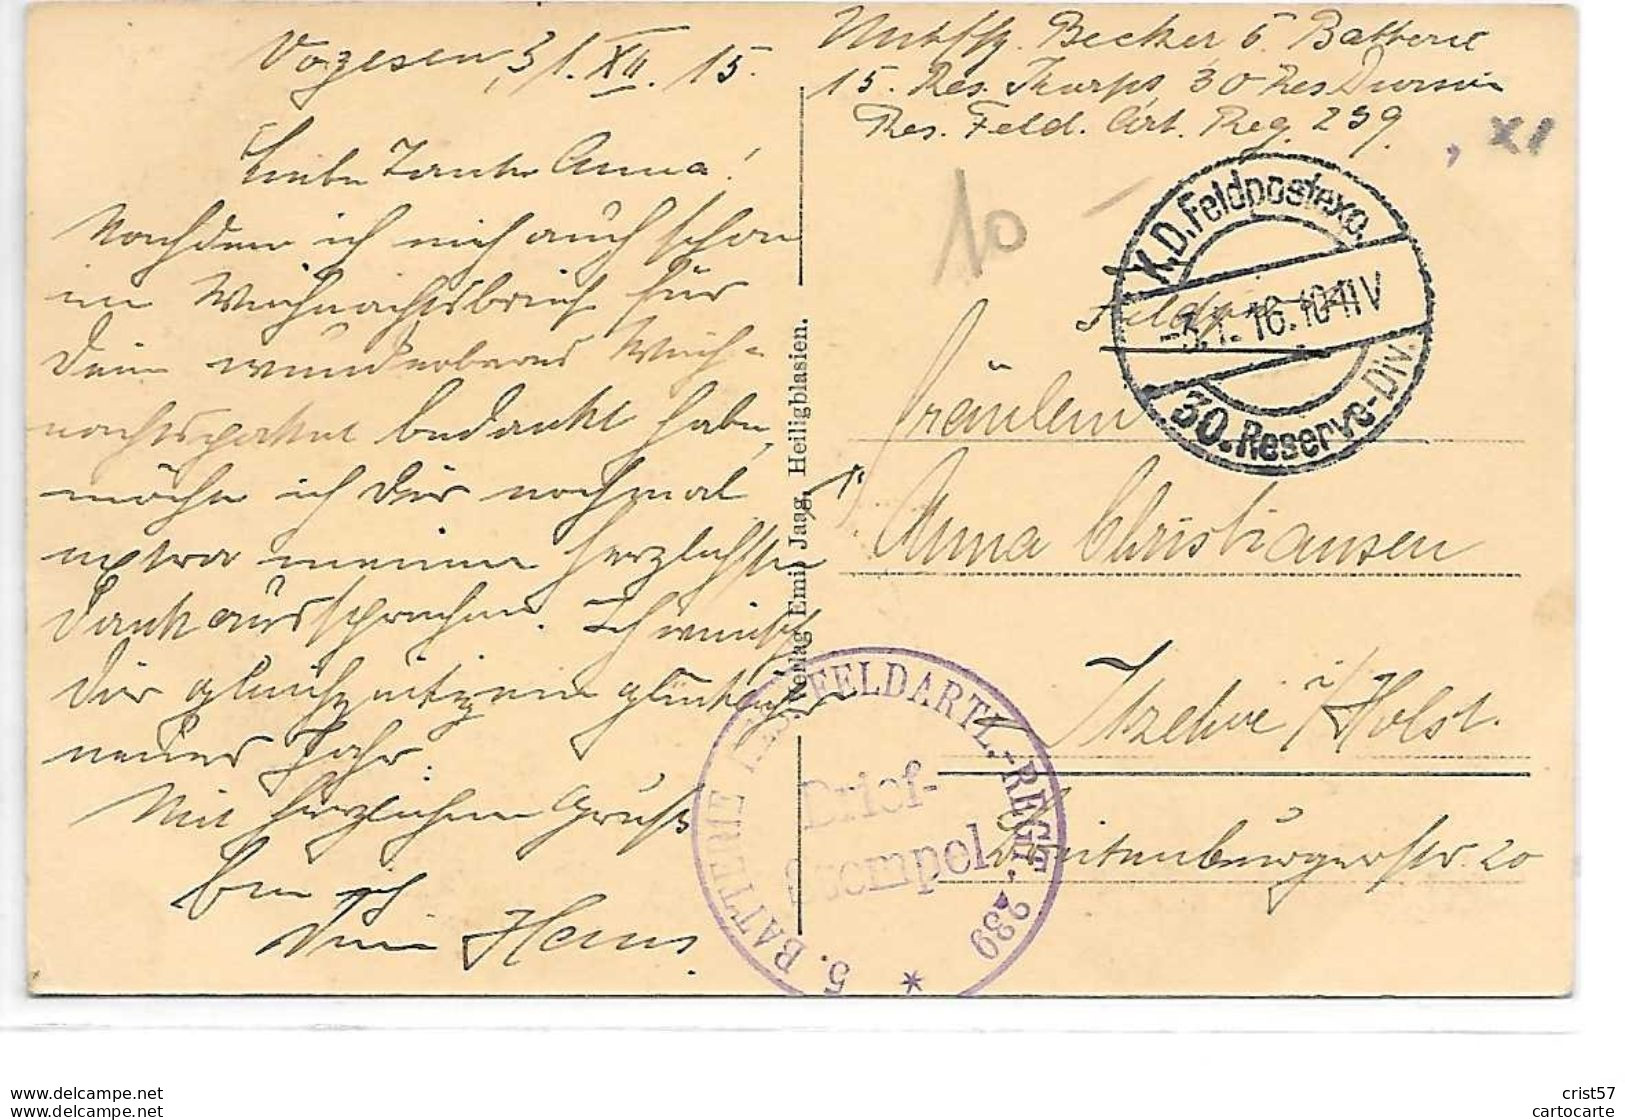 Vogesen, 31. XII. 15.
Liebe Tante Anna!
Nachdem ich mich auch schon
im Weihnachtsbrief für
Dein wunderbares Weih-
nachtspaket bedankt habe,
möchte ich Dir nochmal
meinen herzlichsten
Dank aussprechen. Ich wünsche
Dir gleichzeitig ein glückliches
neues Jahr.
Mit herzlichem Gruß
bin ich
Dein Hans.
Becker 5. Batterie
15. Res. Korps 30 Res Division
Res. Feld. Art. Reg. 239.
, XI
10
K.D. Feldpostexp.
-3.1.16.10-11V
30. Reserve-Div.
Feldpost
Fräulein
Anna Christiansen
Itzehoe i/Holst.
Breitenburgerstr. 20
Verlag Emil Jaag, Heiligblasien.
5. BATTERIE RES. FELDARTL.-REGT. 239
Brief-
Stempel
*
www.delcampe.net
cartocarte
crist57
cartocarte